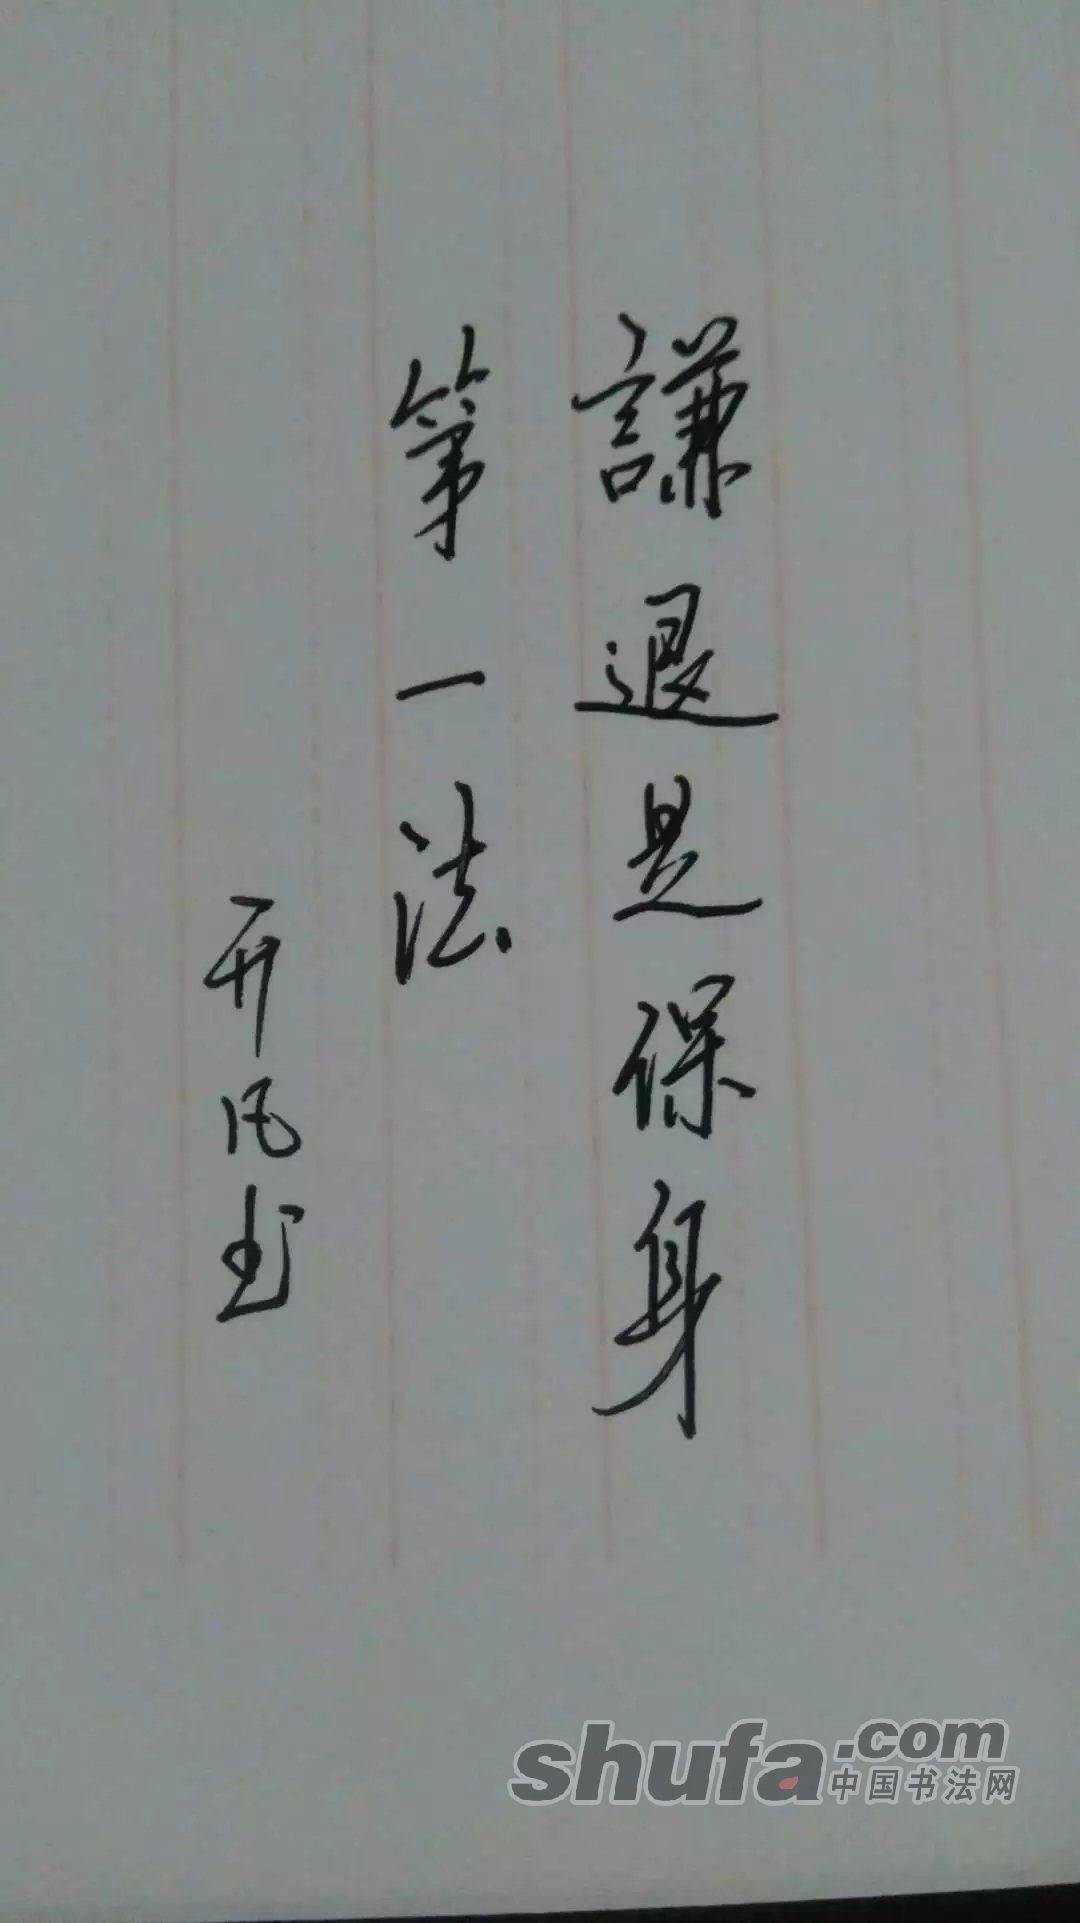 謙退是保身
第一法
开凡书
shufa.com
中国书法网